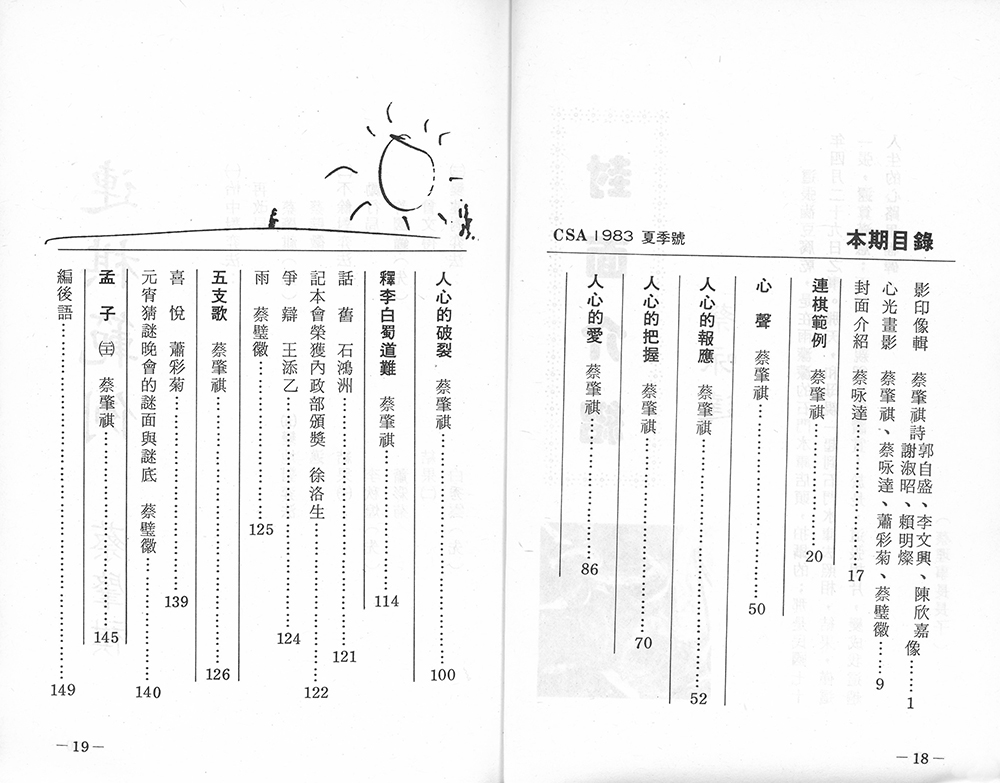 本期目錄
CSA 1983 夏季號
影印像輯 蔡肇祺詩 郭自盛、李文興、陳欣嘉 謝淑昭、賴明燦 像……1
心光畫影 蔡肇祺、蔡咏達、蕭彩菊、蔡璧徽……9
封面介紹 蔡咏達……17
連棋範例 蔡肇祺……20
心聲 蔡肇祺……50
人心的報應 蔡肇祺……52
人心的把握 蔡肇祺……70
人心的愛 蔡肇祺……86
—18—
人心的破裂 蔡肇祺……100
釋李白蜀道難 蔡肇祺……114
話舊 石鴻洲……121
記本會榮獲內政部頒獎 徐洛生……122
爭辯 王添乙……124
雨 蔡璧徽……125
五支歌 蔡肇祺……126
喜悅 蕭彩菊……139
元宵猜謎晚會的謎面與謎底 蔡璧徽……140
孟子 蔡肇祺……145
編後語……149
—19—